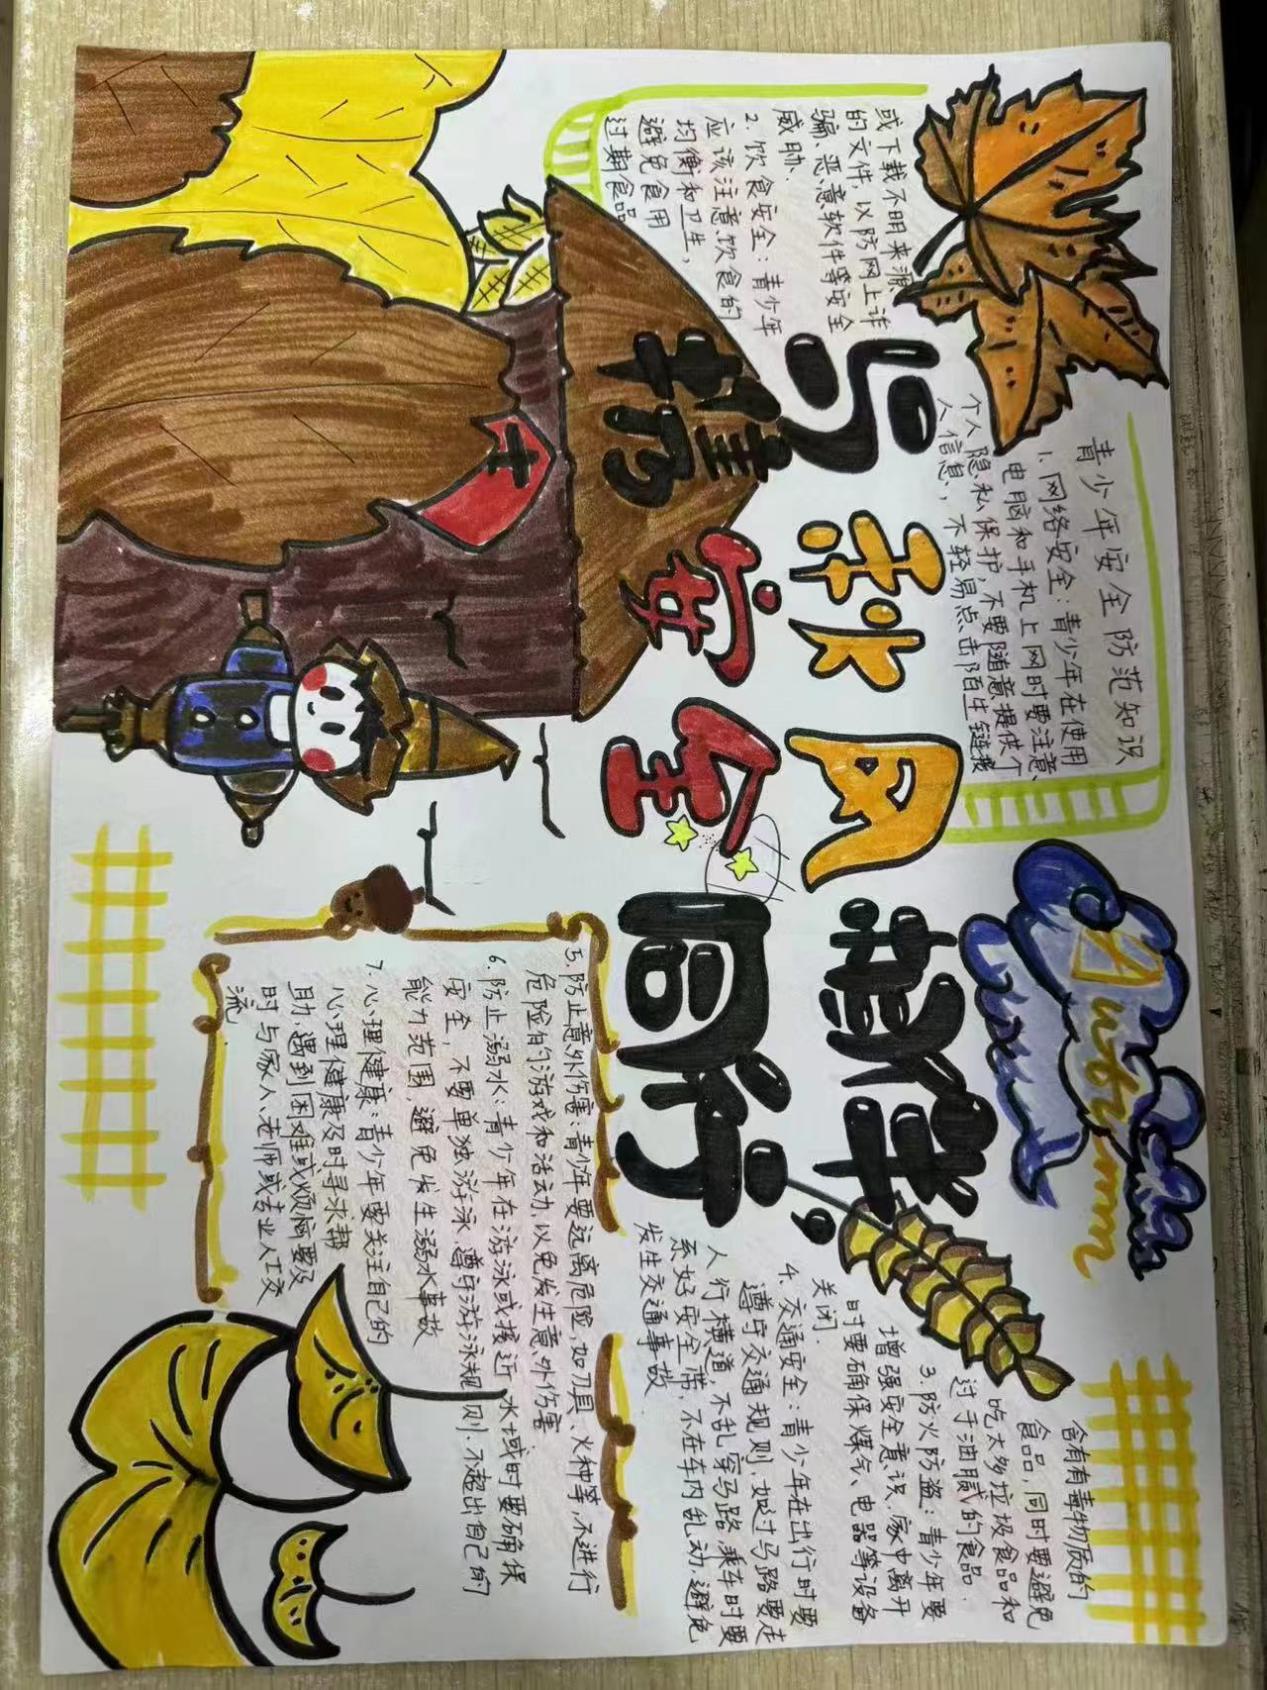 与秋日撞伴
携安全同行
Autumn
青少年安全防范知识
1. 网络安全：青少年在使用
电脑和手机上网时要注意
个人隐私保护，不要随意提供个
人信息，不轻易点击陌生链接
或下载不明来源
的文件，以防网上诈
骗、恶意软件等安全
威胁。
2. 饮食安全：青少年
应该注意饮食的
均衡和卫生，
避免食用
过期食品
含有有毒物质的
食品，同时要避免
吃太多垃圾食品和
过于油腻的食品.
3. 防火防盗：青少年要
增强安全意识，家中离开
时要确保煤气、电器等设备
关闭.
4. 交通安全：青少年在出行时要
遵守交通规则，如过马路要走
人行横道，不乱穿马路，乘车时要
系好安全带，不在车内乱动，避免
发生交通事故.
5. 防止意外伤害：青少年要远离危险，如刀具、火种等，不进行
危险的游戏和活动，以免发生意外伤害.
6. 防止溺水：青少年在游泳或接近水域时要确保
安全，不要单独游泳，遵守游泳规则，不超出自己的
能力范围，避免发生溺水事故
7. 心理健康：青少年要关注自己的
心理健康及时寻求帮
助，遇到困难或烦恼要及
时与家人、老师或专业人工交
流